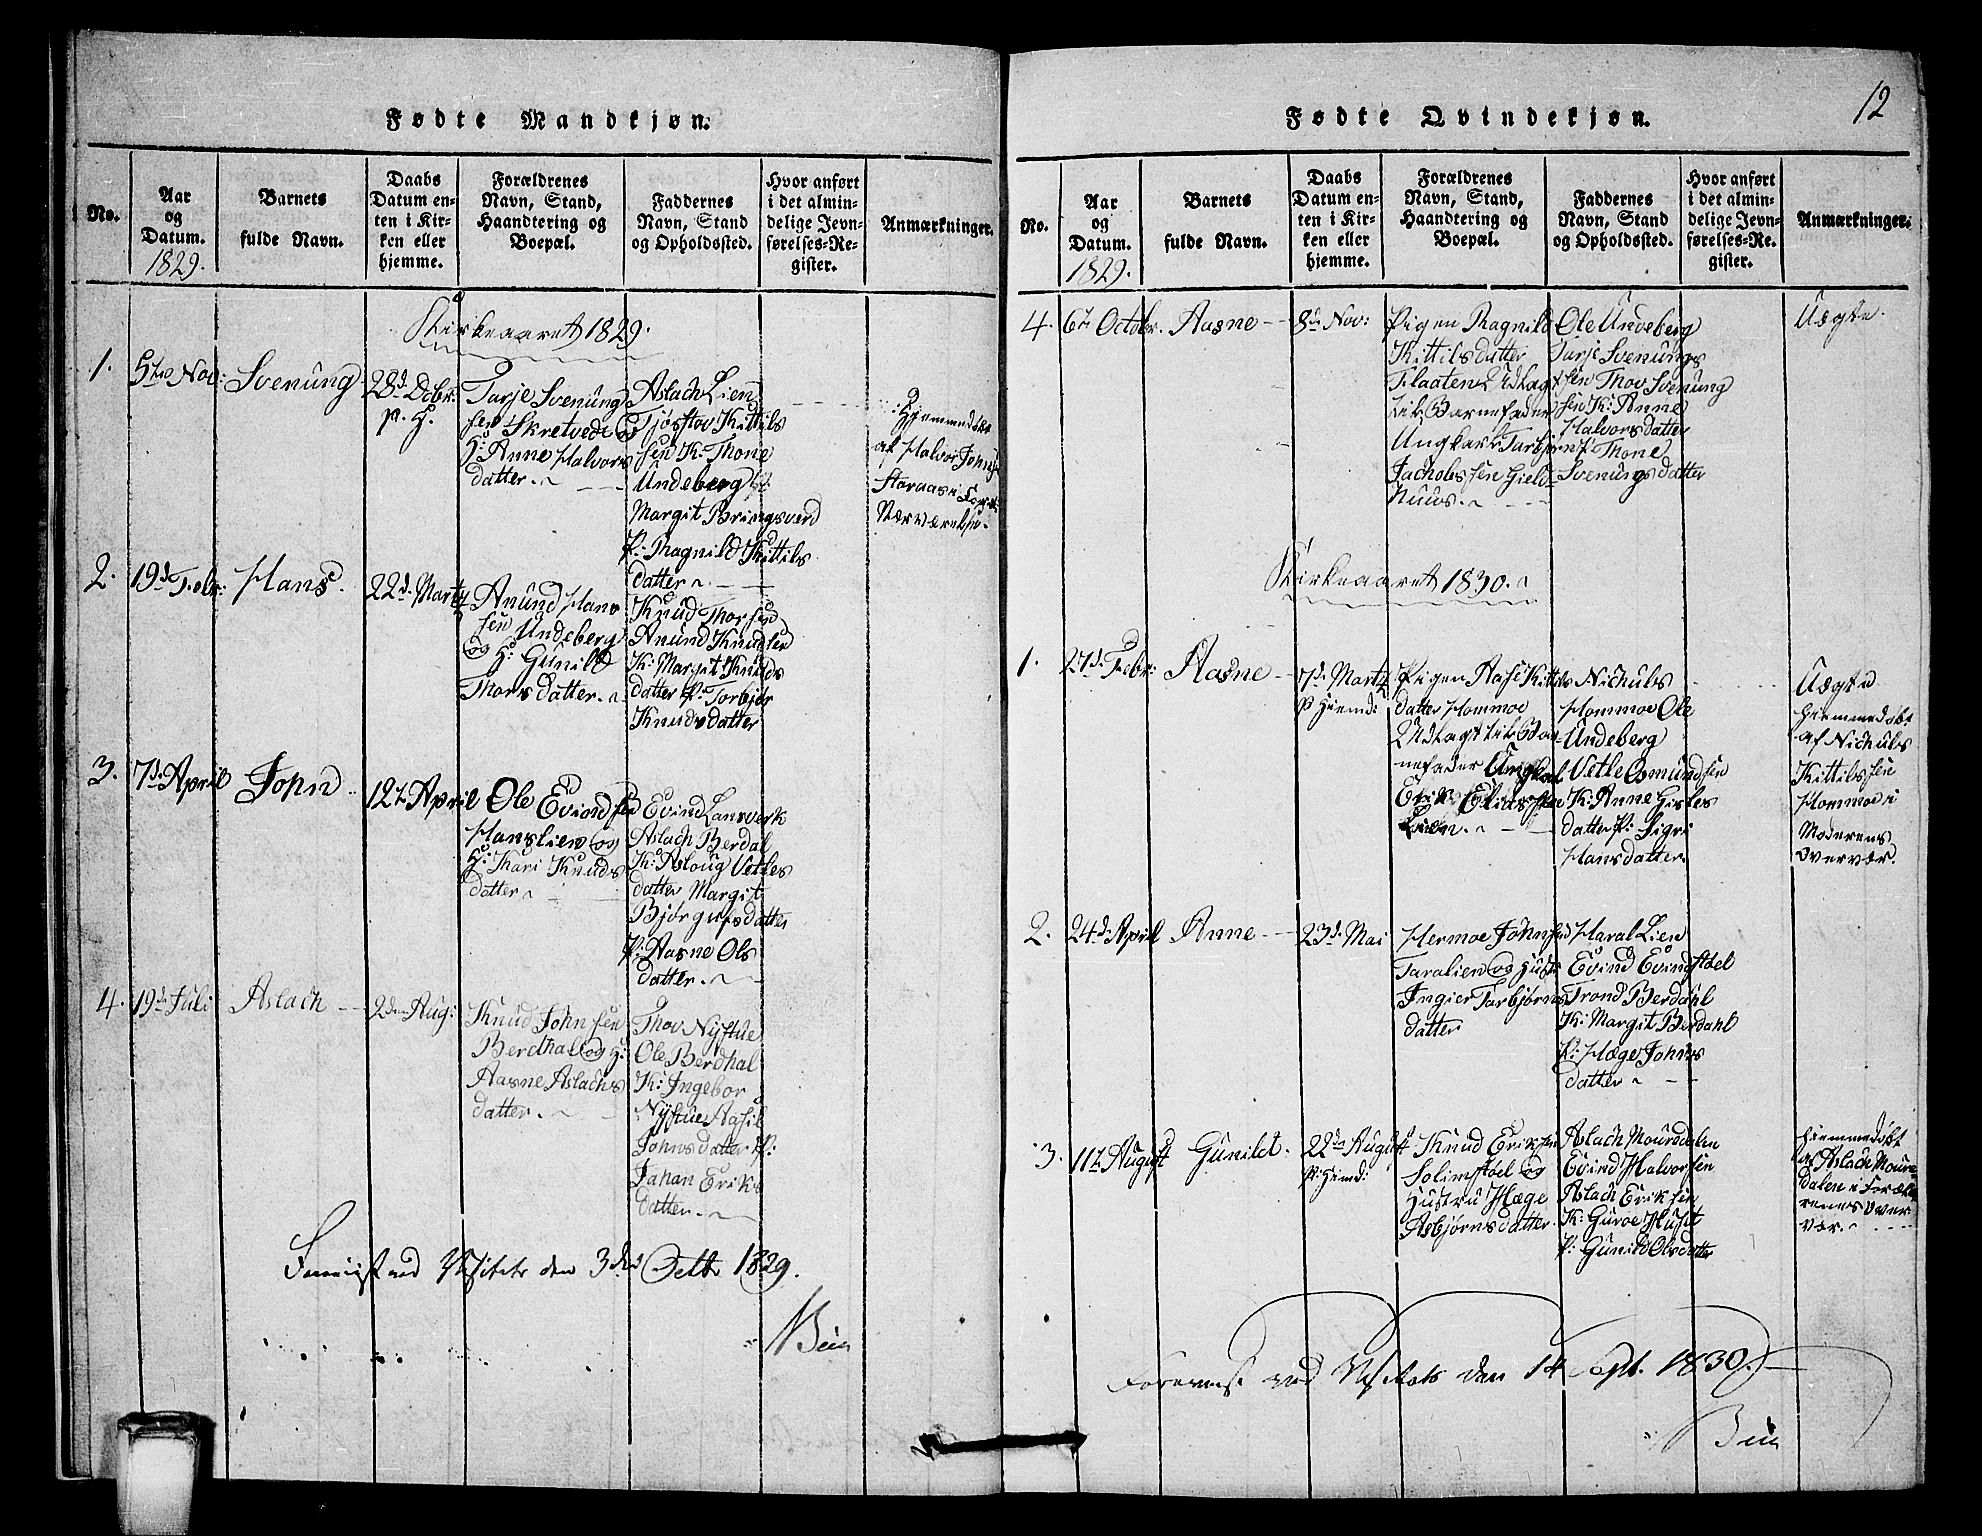 Fødte Mandkjøn.
No.
Aar
og
Datum.
1829.
Barnets
fulde Navn.
Daabs
Datum en-
ten i Kir-
ken eller
hjemme.
Forældrenes
Navn, Stand,
Haandtering og
Boepæl.
Faddernes
Navn, Stand
og Opholdssted.
Hvor anført
i det almin-
delige Jevn-
førelses-Re-
gister.
Anmærkninger.
Kirkeaaret 1829.
1.
5te Nov:
Svenung
28d. Dcbr:
p. H.
Tarje Svenung
sen Skretvedt og
H: Anne Halvors
datter.
Aslach Lien
Tjøstov Kittils
sen K. Thone
Undeberg
Margit Bringsverd
P: Ragnild Kittils
datter
Hjemmedøbt
af Halvor Johns
Storaas i
Nærværelse.
2.
19d. Febr:
Hans.
22d. Martz
Anund Hans
sen Undeberg
og H: Gunild
Thors datter.
Knud Thorsen
Anund Knudsen
K: Margit Knuds
datter P: Torbjør
Knuds datter
3.
7d. April
John
12t. April
Ole Evindsen
Hanslien og
H: Kari Knuds
datter
Evind Lansverk
Aslach Berdal
K: Aslaug Vetles
datter Margit
Bjørgulfsdatter
P: Aasne Ols
datter.
4.
19de Juli
Aslach
2den Aug:
Knud Johnsen
Berdhal og H:
Aasne Aslachs
datter.
Thov Nystue
Ole Berdhal
K: Ingebor
Nystue Aasil
Johns datter P:
Johan Eriks
datter.
ved Visitats den 3die Octbr 1829.
12
Fødte Qvindekjøn.
No.
Aar
og
Datum.
1829.
Barnets
fulde Navn.
Daabs
Datum en-
ten i Kir-
ken eller
hjemme.
Forældrenes
Navn, Stand,
Haandtering og
Boepæl.
Faddernes
Navn, Stand
og Opholdssted.
Hvor anført
i det almin-
delige Jevn-
førelses-Re-
gister.
Anmærkninger.
4.
6te Octobr.
Aasne
8de Nov:
Pigen Ragnild
Kittilsdatter
Flaaten Udlagt
til Barnefader
Ungkarl Tarbjørn
Jachobssen Gield-
Nuus.
Ole Undeberg
Tarje Svenungs
sen Thov Svenung
sen K: Anne
Halvorsdatter
P: Thone
Svenungsdatter
Uægte.
Kirkeaaret 1830.
1.
27d. Febr:
Aasne
7d. Martz
p Hiemd:
Pigen Aase Kittils
datter Hommoe
Udlagt til Bar-
nefader Ungkal
Erik Eliassen
Lien.
Nichuls
Hommoe Ole
Undeberg
Vetle Osmundsen
K: Anne Gisles
datter P: Sigri
Hansdatter.
Uægte
hiemmedøbt
af Nichuls
Kittilssen
Hommoe i
Moderens
overvær.
2.
24d. April
Anne
23d. Mai
Hermoe Johnsen
Taralien og Hust:
Ingier Tarbjørns
datter
Haral Lien
Evind Evindstøel
Trond Berdahl
K: Margit Berdahl
P: Hæge Johns
datter
3.
11t. August
Gunild.
22de August
p: Hiemd:
Knud Eriksen
Solimstøel og
Hustru Hæge
Asbjørnsdatter.
Aslach Mourdalen
Evind Halvorsen
Aslach Eriksen
K: Guroe Huset
P: Gunild Olsdatter
hiemmedøbt
af Aslach Mour-
dalen i Foræld-
renes over-
vær.
Foreviist ved Visitats den 14 Sept. 1830.